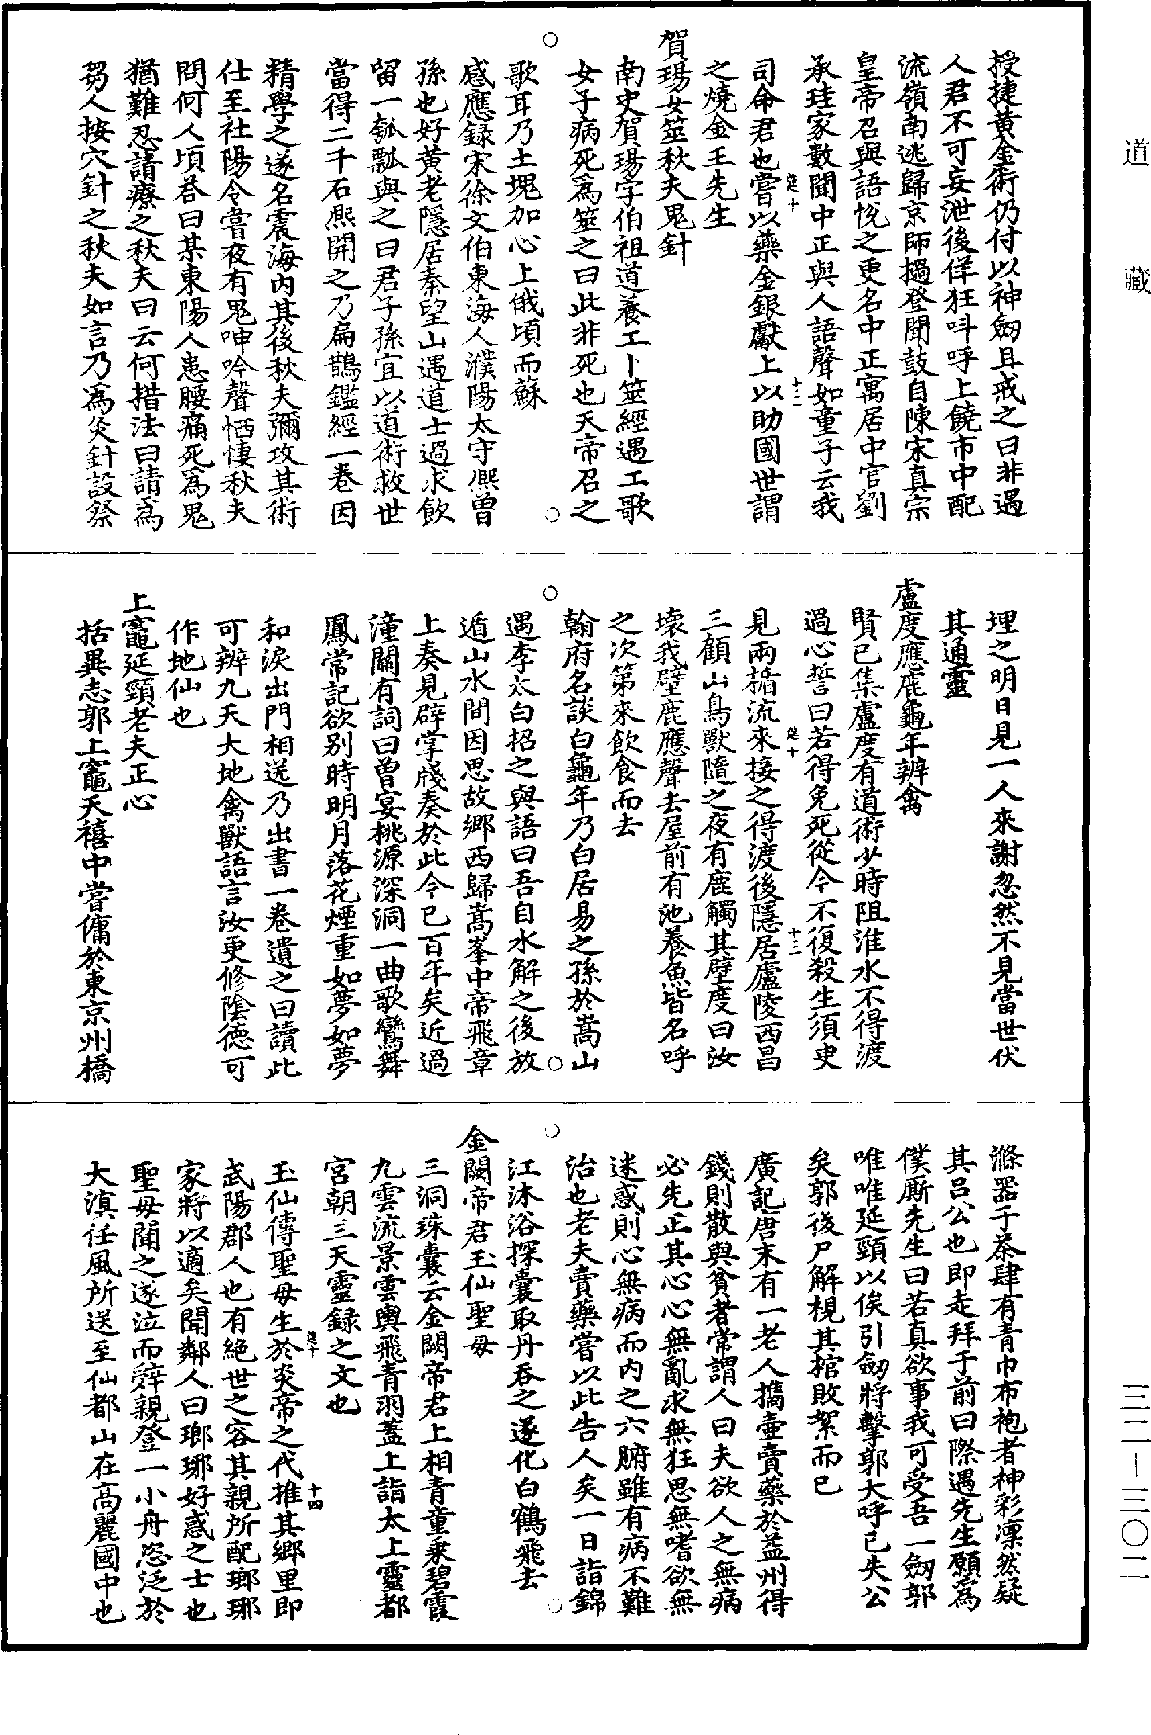 道藏
三二—三〇二
授捷黃金術仍付以神劒且戒之曰非遇
人君不可妄泄後佯狂呌呼上饒市中配
流嶺南逃歸京師撾登聞鼓自陳宋真宗
皇帝召與語悅之更名中正寓居中官劉
承珪家數聞中正與人語聲如童子云我
司命君也嘗以藥金銀獻上以助國世謂
之燒金王先生
賀瑒女筮秋夫鬼針
南史賀瑒字伯祖道養工卜筮經遇工歌
女子病死爲筮之曰此非死也天帝召之
歌耳乃土塊加心上俄頃而蘇
感應録宋徐文伯東海人濮陽太守熙曾
孫也好黃老隱居秦望山遇道士過求飲
留一瓠瓢與之曰君子孫宜以道術救世
當得二千石熙開之乃扁鵲鑑經一卷因
精學之遂名震海內其後秋夫彌攻其術
仕至社陽令嘗夜有鬼呻吟聲恓悽秋夫
問何人頃荅曰某東陽人患腰痛死爲鬼
猶難忍請療之秋夫曰云何措法曰請爲
芻人按穴針之秋夫如言乃爲灸針設祭
埋之明日見一人來謝忽然不見當世伏
其通靈
盧度應鹿龜年辨禽
賢已集盧度有道術少時阻淮水不得渡
過心誓曰若得免死從今不復殺生須臾
見兩楯流來接之得渡後隱居廬陵西昌
三顧山鳥獸隨之夜有鹿觸其壁度曰汝
壞我壁鹿應聲去屋前有池養魚皆名呼
之次第來飲食而去
翰府名談白龜年乃白居易之孫於嵩山
遇李太白招之與語曰吾自水解之後放
遁山水間因思故鄉西歸嵩峯中帝飛章
上奏見辟掌牋奏於此今已百年矣近過
潼關有詞曰曾宴桃源深洞一曲歌鸞舞
鳳常記欲別時明月落花煙重如夢如夢
和淚出門相送乃出書一卷遺之曰讀此
可辨九天大地禽獸語言汝更修陰德可
作地仙也
上竈延頸老夫正心
括異志郭上竈天禧中嘗傭於東京州橋
滌器于茶肆有青巾布袍者神彩凜然疑
其呂公也即走拜于前曰際遇先生願爲
僕厮先生曰若真欲事我可受吾一劒郭
唯唯延頸以俟引劒將擊郭大呼已失公
矣郭後尸解梘其棺敗絮而已
廣記唐末有一老人攜壷賣藥於益州得
錢則散與貧者常謂人曰夫欲人之無病
必先正其心心無亂求無狂思無嗜欲無
迷惑則心無病而內之六腑雖有病不難
治也老夫賣藥嘗以此告人矣一日詣錦
江沐浴探囊取丹吞之遂化白鶴飛去
金闕帝君玉仙聖母
三洞珠囊云金闕帝君上相青童乘碧霞
九雲流景雲輿飛青羽蓋上詣太上靈都
宮朝三天靈録之文也
玉仙傳聖母生於炎帝之代推其鄉里即
武陽郡人也有絕世之容其親所配瑯琊
家將以適矣聞鄰人曰瑯琊好惑之士也
聖母聞之遂泣而辤親登一小舟恣泛於
大滇任風所送至仙都山在高麗國中也